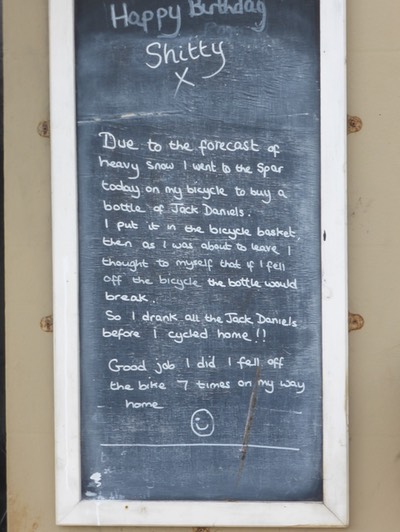 Happy Birthday
Shitty
X
Due to the forecast of
heavy snow I went to the Spar
today on my bicycle to buy a
bottle of Jack Daniels.
I put it in the bicycle basket,
then as I was about to leave I
thought to myself that if I fell
off the bicycle the bottle would
break.
So I drank all the Jack Daniels
before I cycled home!!
Good job I did I fell off
the bike 7 times on my way
home